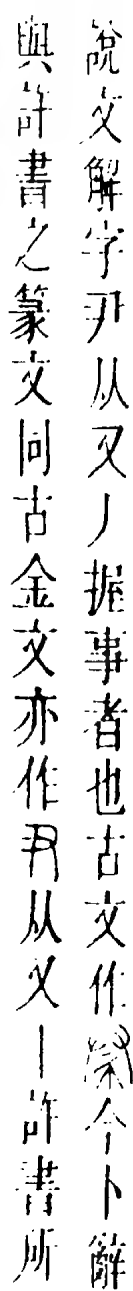 說文解字尹从又丿握事者也古文作今卜辭
與許書之篆文同古金文亦作从又丨許書所